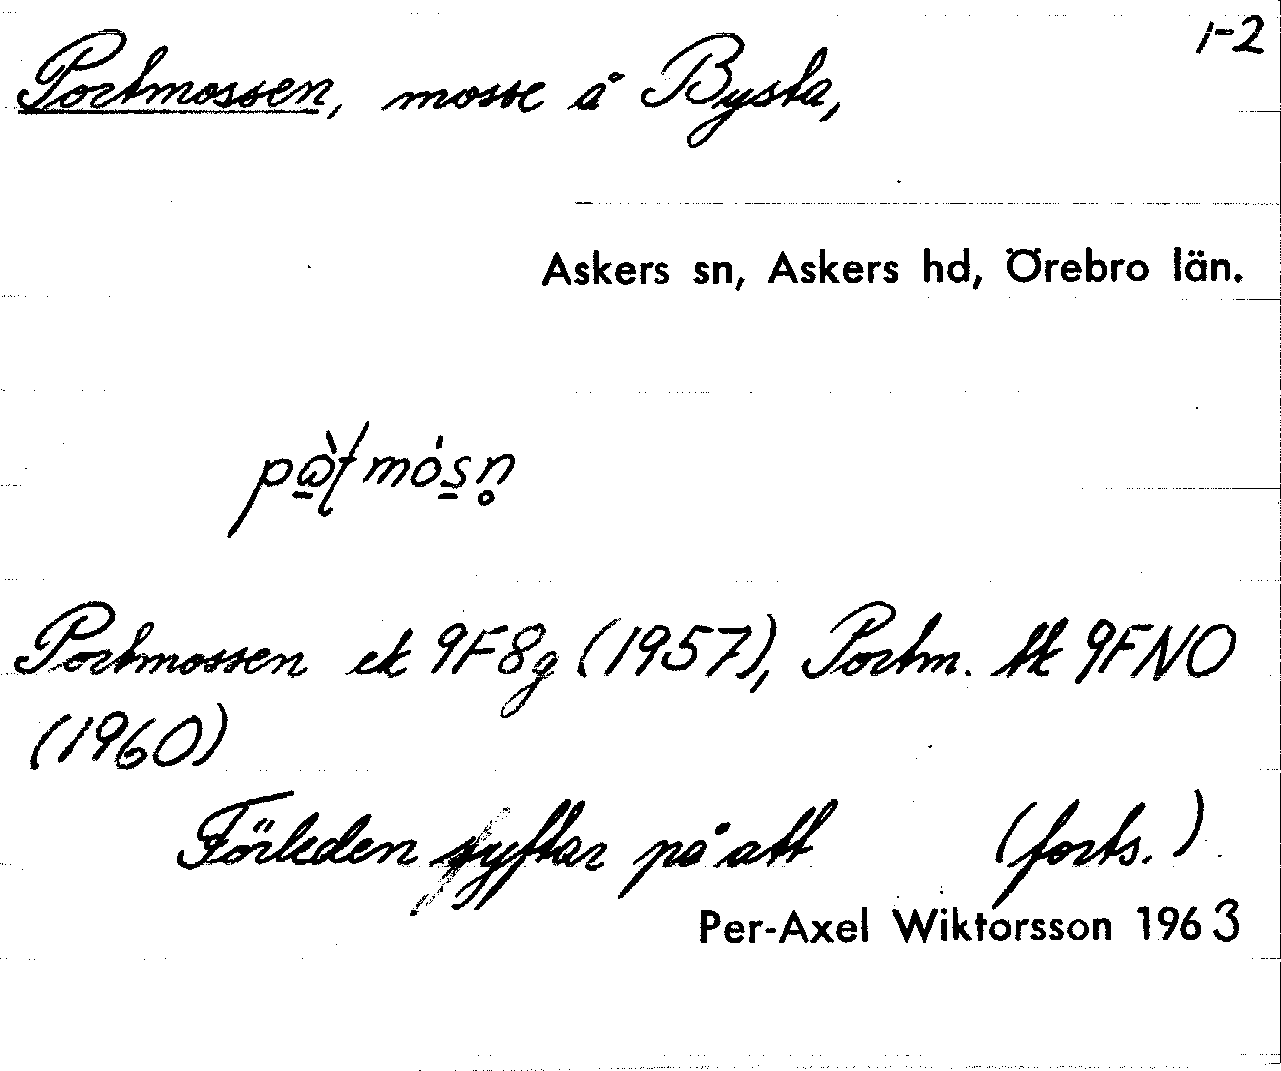 1-2
Portmossen, mosse å Bysta,
Askers sn, Askers hd, Örebro län.
Portmossen ek 9F8g (1957), Portm. tk 9FNO
(1960)
Förleden syftar på att (forts.)
Per-Axel Wiktorsson 1963